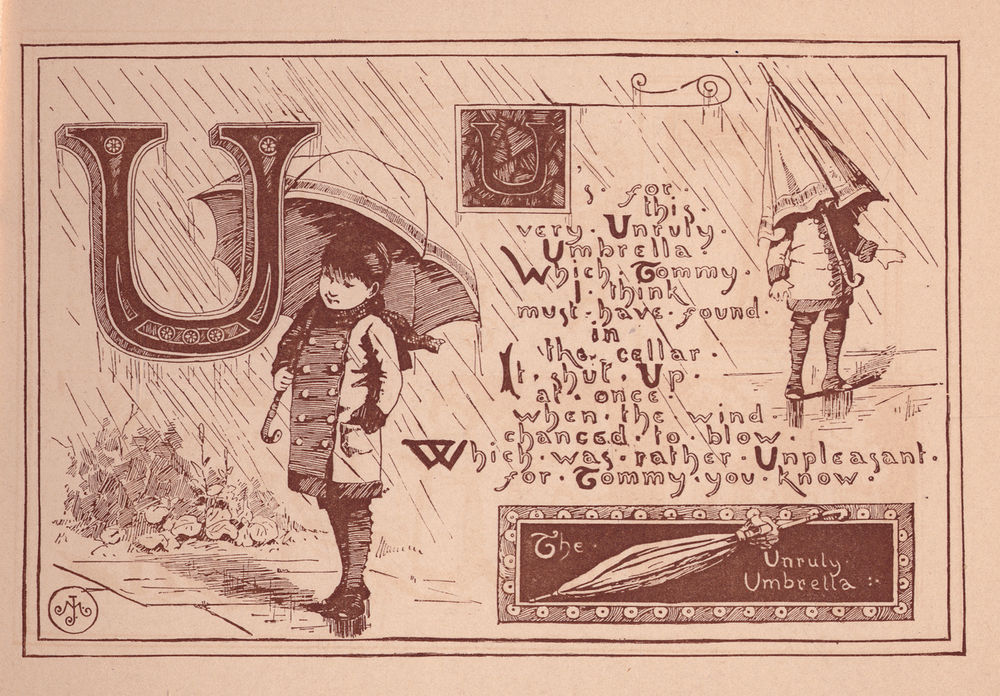 U
U's. for.
this.
very. Unruly.
Umbrella.
Which. Tommy.
I. think
must. have. found.
in
the. cellar.
It. shut. Up.
at. once.
when. the. wind
chanced. to. blow.
Which. was. rather. Unpleasant.
for. Tommy. you. know.
The.
Unruly
Umbrella